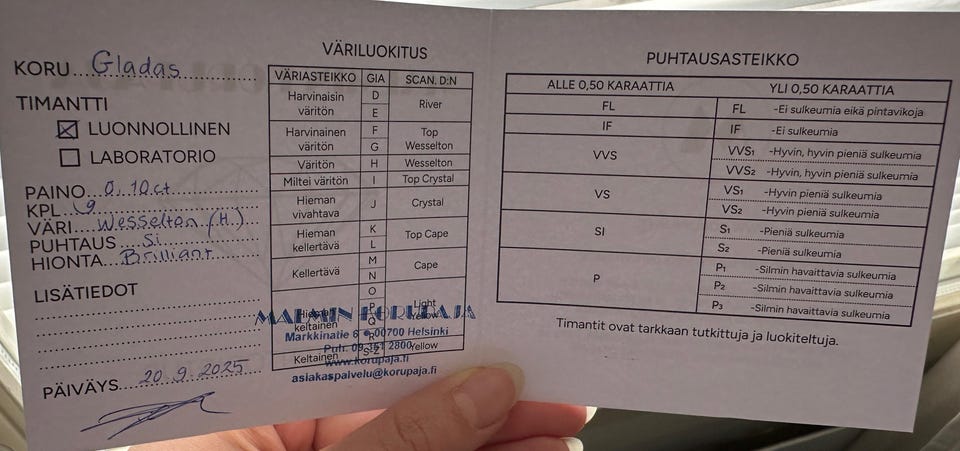 KORU Gladas
TIMANTTI
☒ LUONNOLLINEN
☐ LABORATORIO
PAINO 0.10ct
KPL 9
VÄRI Wesselton (H)
PUHTAUS Si
HIONTA Brilliant
LISÄTIEDOT
PÄIVÄYS 20.9.2025
VÄRILUOKITUS
VÄRIASTEIKKO GIA SCAN. D:N
Harvinaisin väritön D E River
Harvinainen väritön F G Top Wesselton
Väritön H Wesselton
Miltei väritön I Top Crystal
Hieman vivahtava J Crystal
Hieman kellertävä K L Top Cape
Kellertävä M N Cape
Hieman keltainen O P Q R Light Yellow
Keltainen S-Z Yellow
MALMIN KORUPAJA
Markkinatie 6 • 00700 Helsinki
Puh. 09 351 2800
www.korupaja.fi
asiakaspalvelu@korupaja.fi
PUHTAUSASTEIKKO
ALLE 0,50 KARAATTIA YLI 0,50 KARAATTIA
FL FL -Ei sulkeumia eikä pintavikoja
IF IF -Ei sulkeumia
VVS VVS1 -Hyvin, hyvin pieniä sulkeumia
VVS2 -Hyvin, hyvin pieniä sulkeumia
VS VS1 -Hyvin pieniä sulkeumia
VS2 -Hyvin pieniä sulkeumia
SI S1 -Pieniä sulkeumia
S2 -Pieniä sulkeumia
P P1 -Silmin havaittavia sulkeumia
P2 -Silmin havaittavia sulkeumia
P3 -Silmin havaittavia sulkeumia
Timantit ovat tarkkaan tutkittuja ja luokiteltuja.